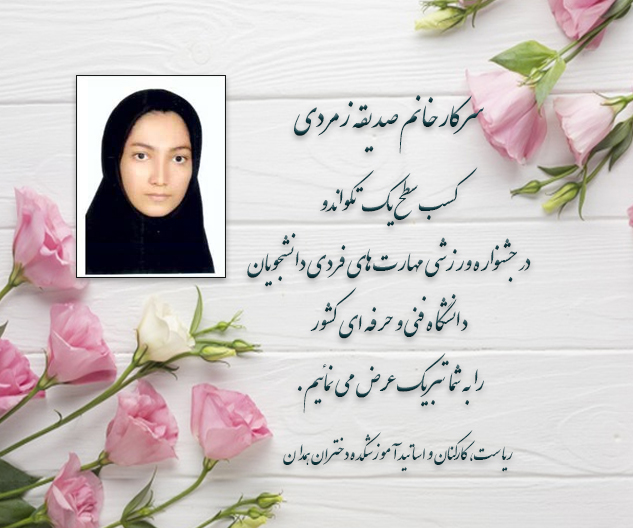 سرکار خانم صدیقه زمردی
کسب سطح یک تکواندو
در جشنواره ورزشی مهارت های فردی دانشجویان
دانشگاه فنی و حرفه ای کشور
را به شما تبریک عرض می نمائیم .
ریاست، کارکنان و اساتید آموزشکده دختران همدان